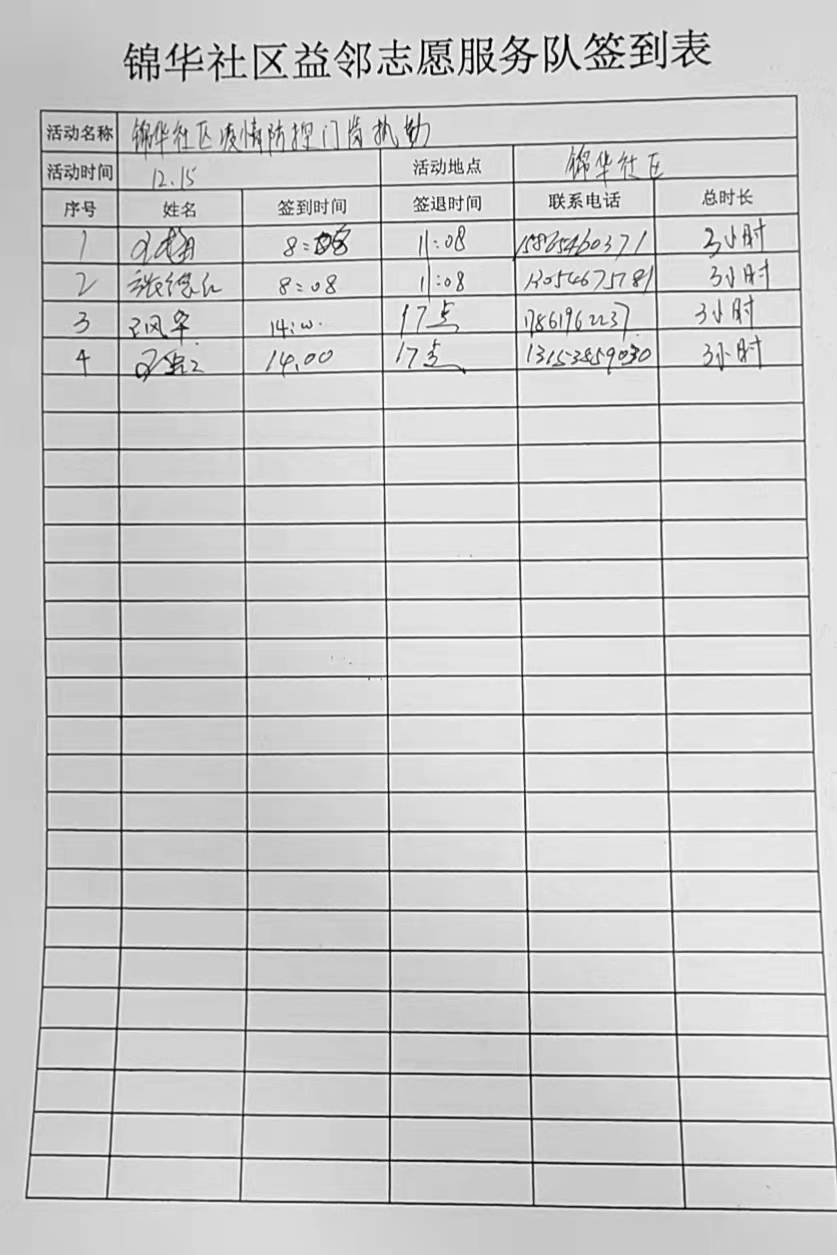 锦华社区益邻志愿服务队签到表
活动名称 锦华社区疫情防控门岗执勤
活动时间 12.15 活动地点 锦华社区
序号 姓名 签到时间 签退时间 联系电话 总时长
1 8:08 11:08 15865460371 3小时
2 张德红 8:08 11:08 13054675781 3小时
3 王风华 14:00 17点 17861962237 3小时
4 14.00 17点 13153859030 3小时